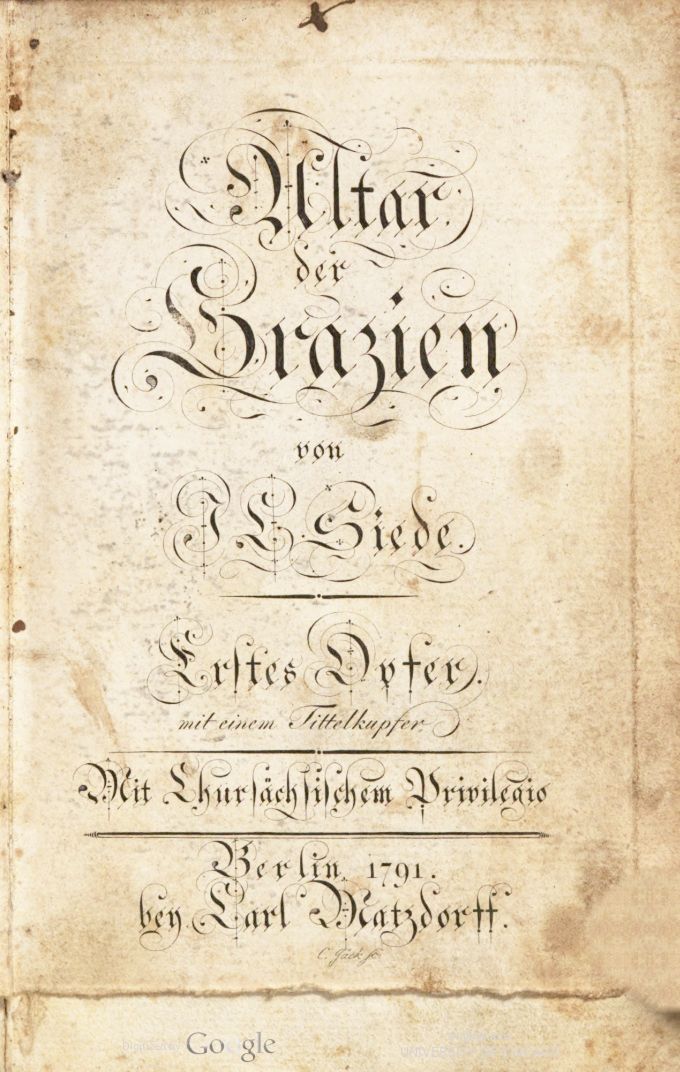 Altar
der
Grazien
von
J C Siede.
Erstes Opfer.
mit einem Tittelkupfer.
Mit Chursächsischem Privilegio
Berlin, 1791.
bey Carl Matzdorff.
C. Jäck sc.
Digitized by Google
UNIVERSITY OF